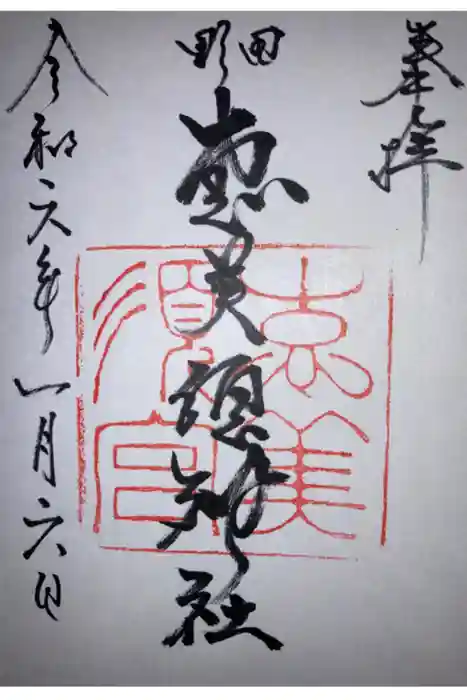 奉拝
野田
恵美須神社
恵美
須宮
令和六年一月六日